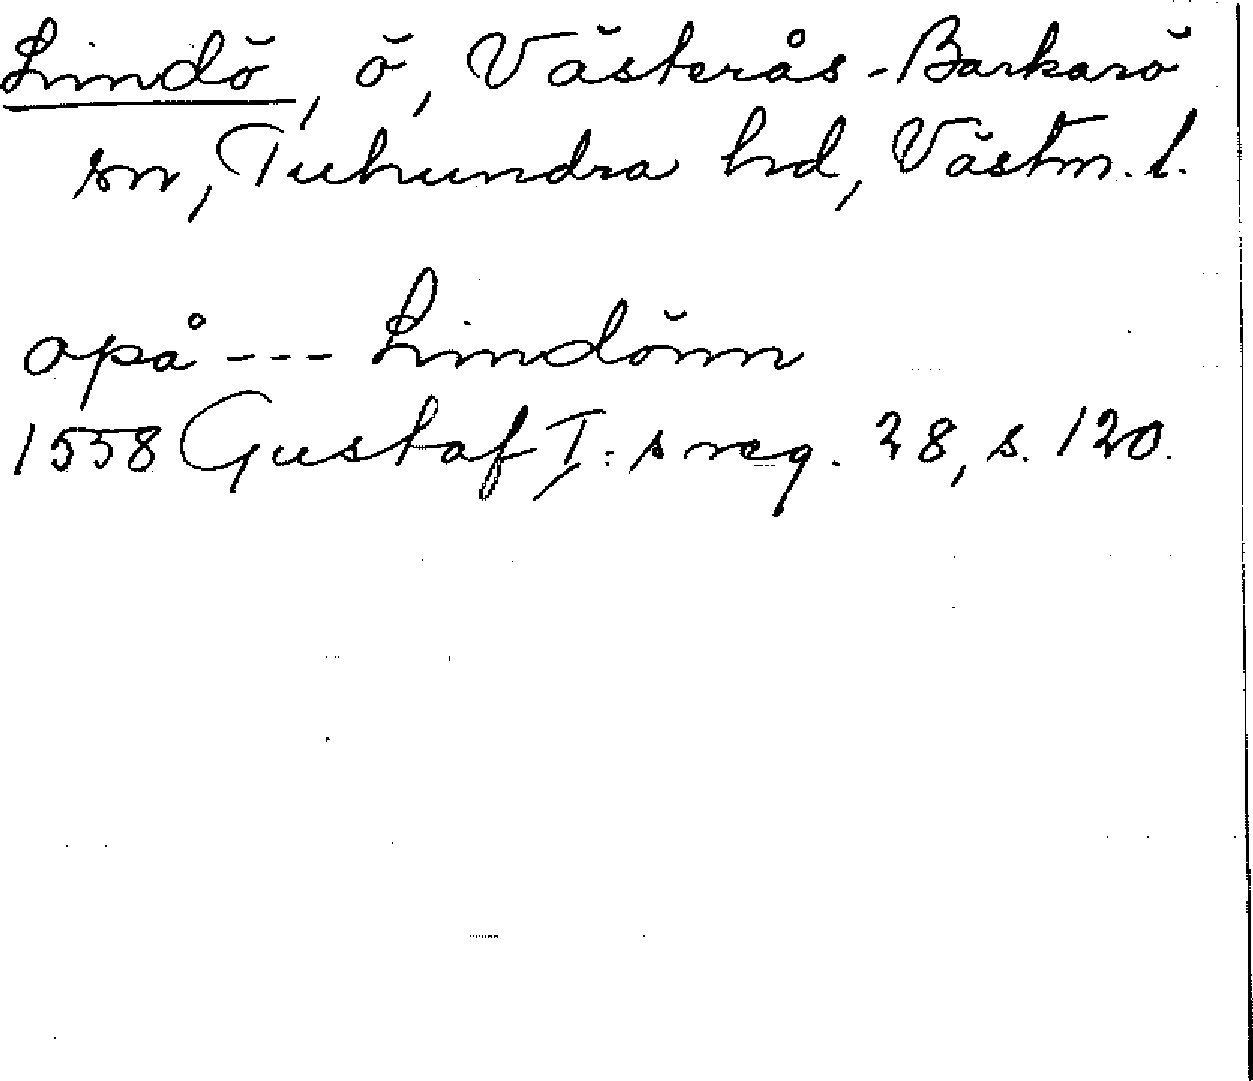 Lindö, ö, Västerås-Barkarö
sn, Tuhundra hd, Västm. l.
opå --- Lindönn
1558 Gustaf I:s reg. 28, s. 120.